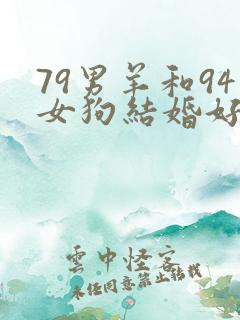 79男羊和94
女狗結婚好
雲中怪客
未经同意禁止转载